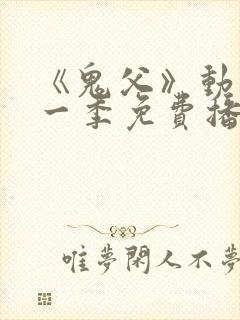 《鬼父》動
一季免費播
唯夢閑人不夢